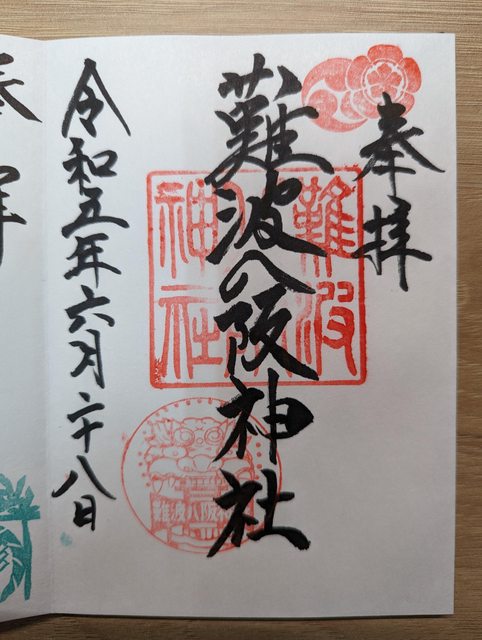 奉拝
難波八阪神社
令和五年六月二十八日
難波
神社
難波八阪神
奉拝